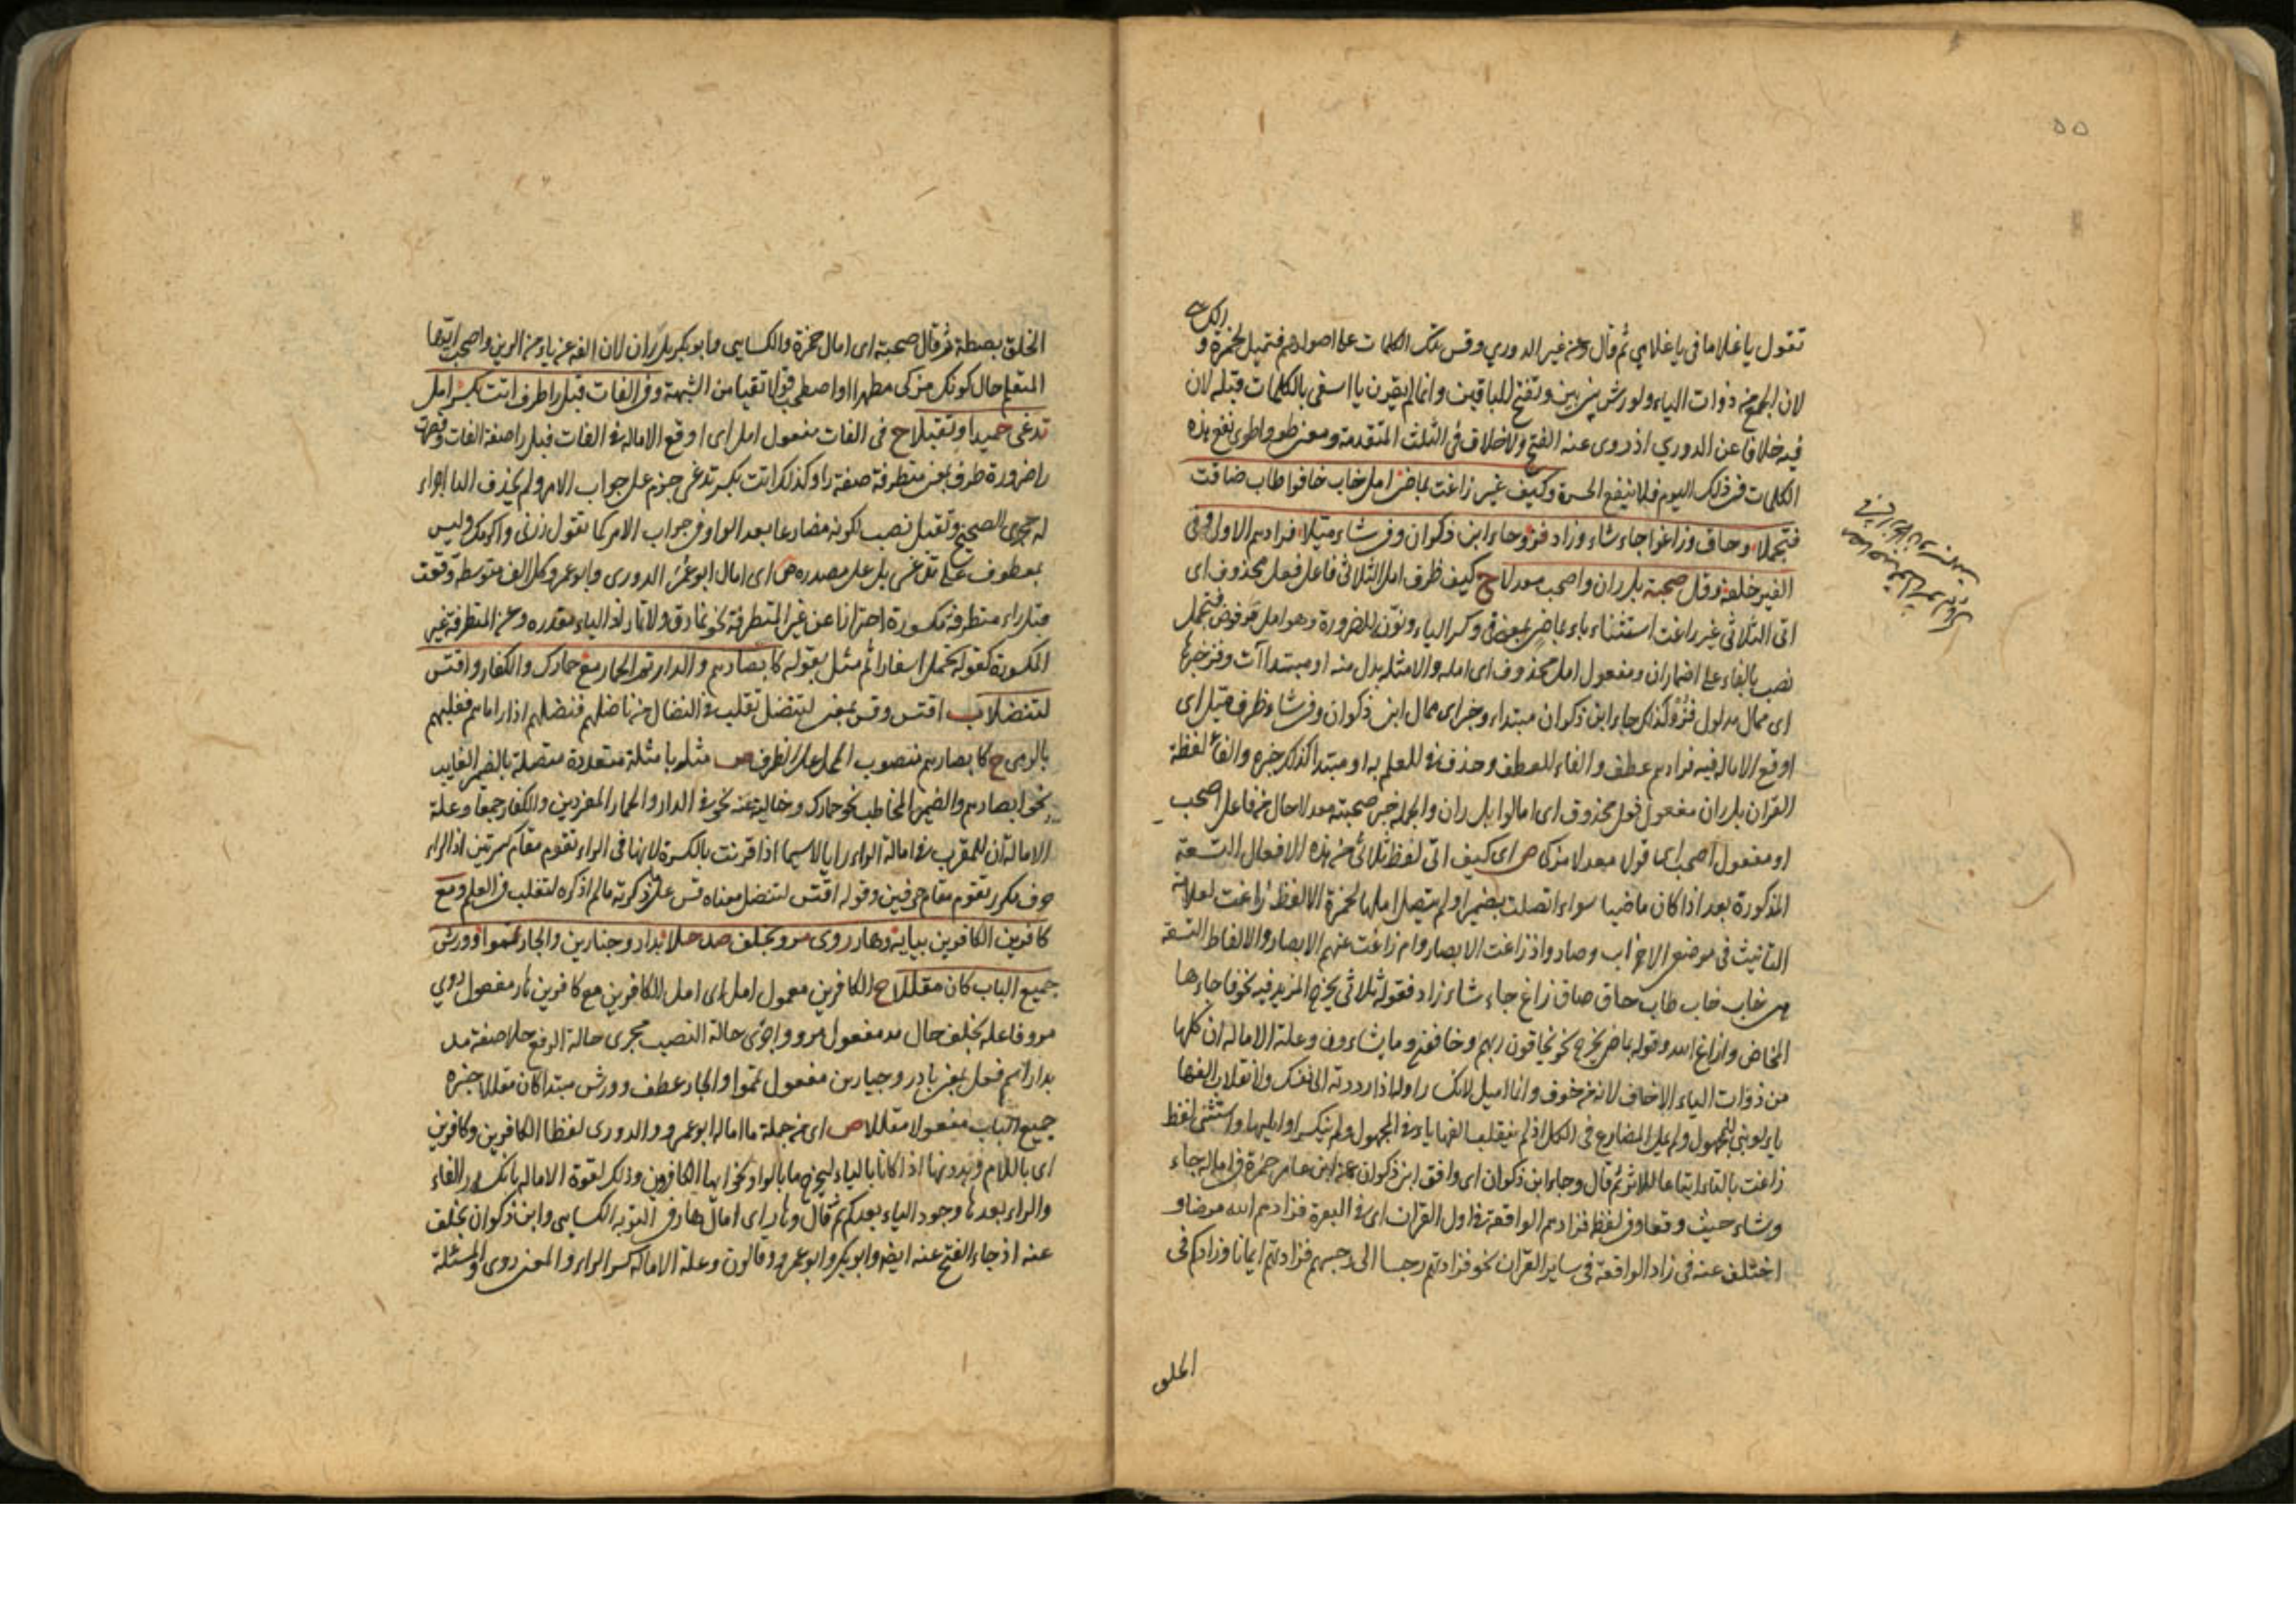 ٥٥
تقول يا غلاما في يا غلامي ثم قال وعن غير الدوري وقس تلك الكلمات على اصولهم فتميل لحمزة و
الكسا
لان الجميع من ذوات الياء ولورش بين بين وتفتح للباقين وانما لم يقرن يا اسفى بالكلمات قبله لان
فيه خلافا عن الدوري اذ روى عنه الفتح ولا خلاف في الثلث المتقدمة ومعنى طوو اطوى نفع هذه
الكلمات في ذلك اليوم فلا ينفع الحسرة وكيف غير زاغت بماض امل خاب خافوا طاب ضاقت
فتجملا وحاق وزاغوا جاء شاء وزاد فز وجاء ابن ذكوان وفي شاء ميلا فزادهم الاول وفي
الغير خلفه وقل صحبة بل ران واصحب معدلا ح كيف ظرف امل الثلاثي فاعل فعل محذوف اى
اتى الثلاثي غير زاغت استثناء باء بماض بمعنى في وكسر الياء ونون للضرورة وهو امل فتجمل
نصب بالفاء على اضمار ان ومفعول امل محذوف اى امله والامثلة بدل منه او مبتدا آت وفز خبرها
اى ممال مدلول فز وكذلك جاء ابن ذكوان مبتداء وخبر اى ممال ابن ذكوان وفي شاء ظرف ميل اى
اوقع الامالة فيه فزادهم عطف والفاء للعطف وحذف للعلم به او مبتدا كذلك خبره والفاء لفظة
القرآن بل ران مفعول قول محذوف اى امالوا بل ران والجملة خبر صحبته معدلا حال من فاعل اصحب
او مفعول اصحب اى قولا معدلا مزكى ص اى كيف اتى لفظ ثلاثي من هذه الافعال التسعة
المذكورة بعد اذا كان ماضيا سواء اتصلت بضمير او لم يتصل املها لحمزة الا لفظ زاغت لعلامة
التانيث في موضعى الاحزاب وصاد واذ زاغت الابصار وام زاغت عنهم الابصار والالفاظ التسعة
هي خاب خاف طاب حاق ضاق زاغ جاء شاء زاد فقوله ثلاثي يخرج المزيد فيه نحو فاجاءها
المخاض وازاغ الله وقوله بماض يخرج نحو يخافون ربهم وخافون وما يشاءون وعلة الامالة ان كلها
من ذوات الياء الا خاف لانه من خوف وانما اميل لانك راولها اذا رددته الى نفسك ولانقلاب الفها
ياء لو بني للمجهول ولم يمل المضارع في الكل اذ لم ينقلب الفها ياء في المجهول ولم ينكسر اوايلها واستثنى لفظ
زاغت بالتاء اتباعا للاثر ثم قال وجاء ابن ذكوان اى وافق ابن ذكوان عن ابن عامر حمزة في امالة جاء
وشاء حيث وقعا وفي لفظ فزادهم الواقعة في اول القرآن اى في البقرة فزادهم الله مرضا و
اختلف عنه في زاد الواقعة في ساير القرآن نحو فزادتهم رجسا الى رجسهم فزادتهم ايمانا وزادكم في
الخلق
الخلق بصطة ثم قال صحبة اى امال حمزة والكسايي وابو بكر بل ران لان الفه عن ياء من الرين واصحب ايها
المتعلم حال كونك مزكى مطهرا او اصطحب قولا تقيا من الشبهة وفي الفات قبل را طرف اتت بكسر امل
تدعى حميدا وتقبلا ح في الفات مفعول امل اى اوقع الامالة في الفات قبل را صفة الفات وقصرت
را ضرورة طرف بمعنى متطرفة صفة را وكذلك اتت بكسر تدعى جزم على جواب الامر ولم يحذف الفا اجراء
له مجرى الصحيح وتقبل نصب لكونه مضارعا بعد الواو في جواب الامر كما تقول زرني واكرمك وليس
بمعطوف على تدعى بل على مصدره ص اى امال ابو عمر الدوري وابو عمرو كل الف متوسطة وقعت
قبل راء متطرفة مكسورة احترازا عن غير المتطرفة نحو نمارق ولا تمار لان الياء مقدره وعن المتطرفة غير
المكسورة كقوله يحمل اسفارا ثم مثل بقوله كابصارهم والدار ثم الحمار مع حمارك والكفار واقتس
لتنضلا ب اقتس وقس بمعنى لتنضل لتغلب والنضال من ناضلهم فنضلهم اذا راماهم فغلبهم
بالرمى ح كابصارهم منصوب المحل على الظرف ص مثل بامثلة متعددة متصلة بالضمير الغايب
نحو ابصارهم والضمير المخاطب نحو حمارك وخالية عنه نحو في الدار والحمار المفردين والكفار جمعا وعلة
الامالة ان للمقرب في امالة الراء رايا لا سيما اذا قرنت بالكسرة لانها في الراء تقوم مقام كسرتين اذ الراء
حرف مكرر تقوم مقام حرفين وقوله اقتس لتنضل معناه قس على ما ذكرته ما لم اذكره لتغلب في العلم ومع
كافرين الكافرين بيائه وهار روى مرو بخلف صد حلا بدار وجبارين والجار تمموا وورش
جميع الباب كان مقللا ح الكافرين معمول امل اى امل الكافرين مع كافرين هار مفعول روى
مرو فاعله بخلف حال صد مفعول مرو واجرى حالة النصب مجرى حالة الرفع حلا صفة صد
بدار اسم فعل بمعنى بادر وجبارين مفعول تمموا والجار عطف وورش مبتدا كان مقللا خبره
جميع الباب مفعول مقللا ص اى من جملة ما اماله ابو عمرو والدوري لفظا الكافرين وكافرين
اى باللام وبدونها اذا كانا بالياء ليخرج ما بالواو نحو ايها الكافرون وذلك لقوة الامالة بانكسار الفاء
والراء بعدها ووجود الياء بعدكم ثم قال وهار اى امال هار في التوبة الكسايي وابن ذكوان بخلف
عنه اذ جاء الفتح عنه ايضا وابو بكر وابو عمرو وقالون وعلة الامالة كسر الراء والمعنى روى المسئلة